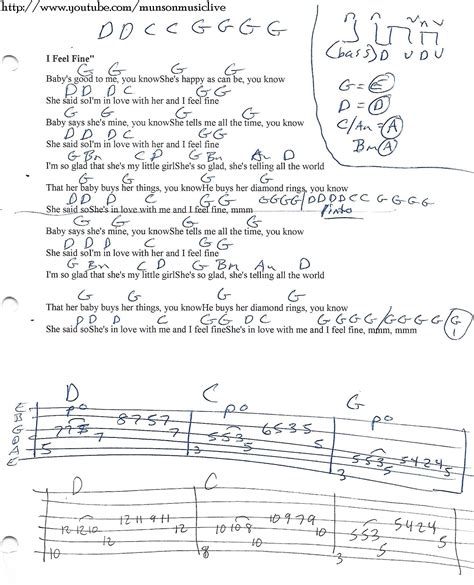 http://www.youtube.com/munsonmusiclive
D D C C G G G G
V n V
(bass) D U D U
G = E
D = D
C/Am = A
Bm A
I Feel Fine"
G G G G
Baby's good to me, you knowShe's happy as can be, you know
D D D C G G
She said soI'm in love with her and I feel fine
G G G G
Baby says she's mine, you knowShe tells me all the time, you know
D D D C G G
She said soI'm in love with her and I feel fine
G Bm C D G Bm Am D
I'm so glad that she's my little girlShe's so glad, she's telling all the world
G G G G
That her baby buys her things, you knowHe buys her diamond rings, you know
D D D C G G GGGG/DDDDCC G G G G
She said soShe's in love with me and I feel fine, mmm
G G G G
Baby says she's mine, you knowShe tells me all the time, you know
D D D C G G
She said soI'm in love with her and I feel fine
G Bm C D G Bm Am D
I'm so glad that she's my little girlShe's so glad, she's telling all the world
G G G G
That her baby buys her things, you knowHe buys her diamond rings, you know
D D D C G G D C G G G G/G G G G G
She said soShe's in love with me and I feel fineShe's in love with me and I feel fine, mmm, mmm
D C G
po po po
E
B
G
D
A
E
5 7 7 5 7 8 7 5 7 7 3 5 5 3 5 6 5 3 5 5 3 5 5 3 5 5 4 2 4 5
D C
10 12 12 10 12 12 11 9 11 12 8 10 10 8 10 10 9 7 9 10 3 5 5 3 5 5 4 2 4 5